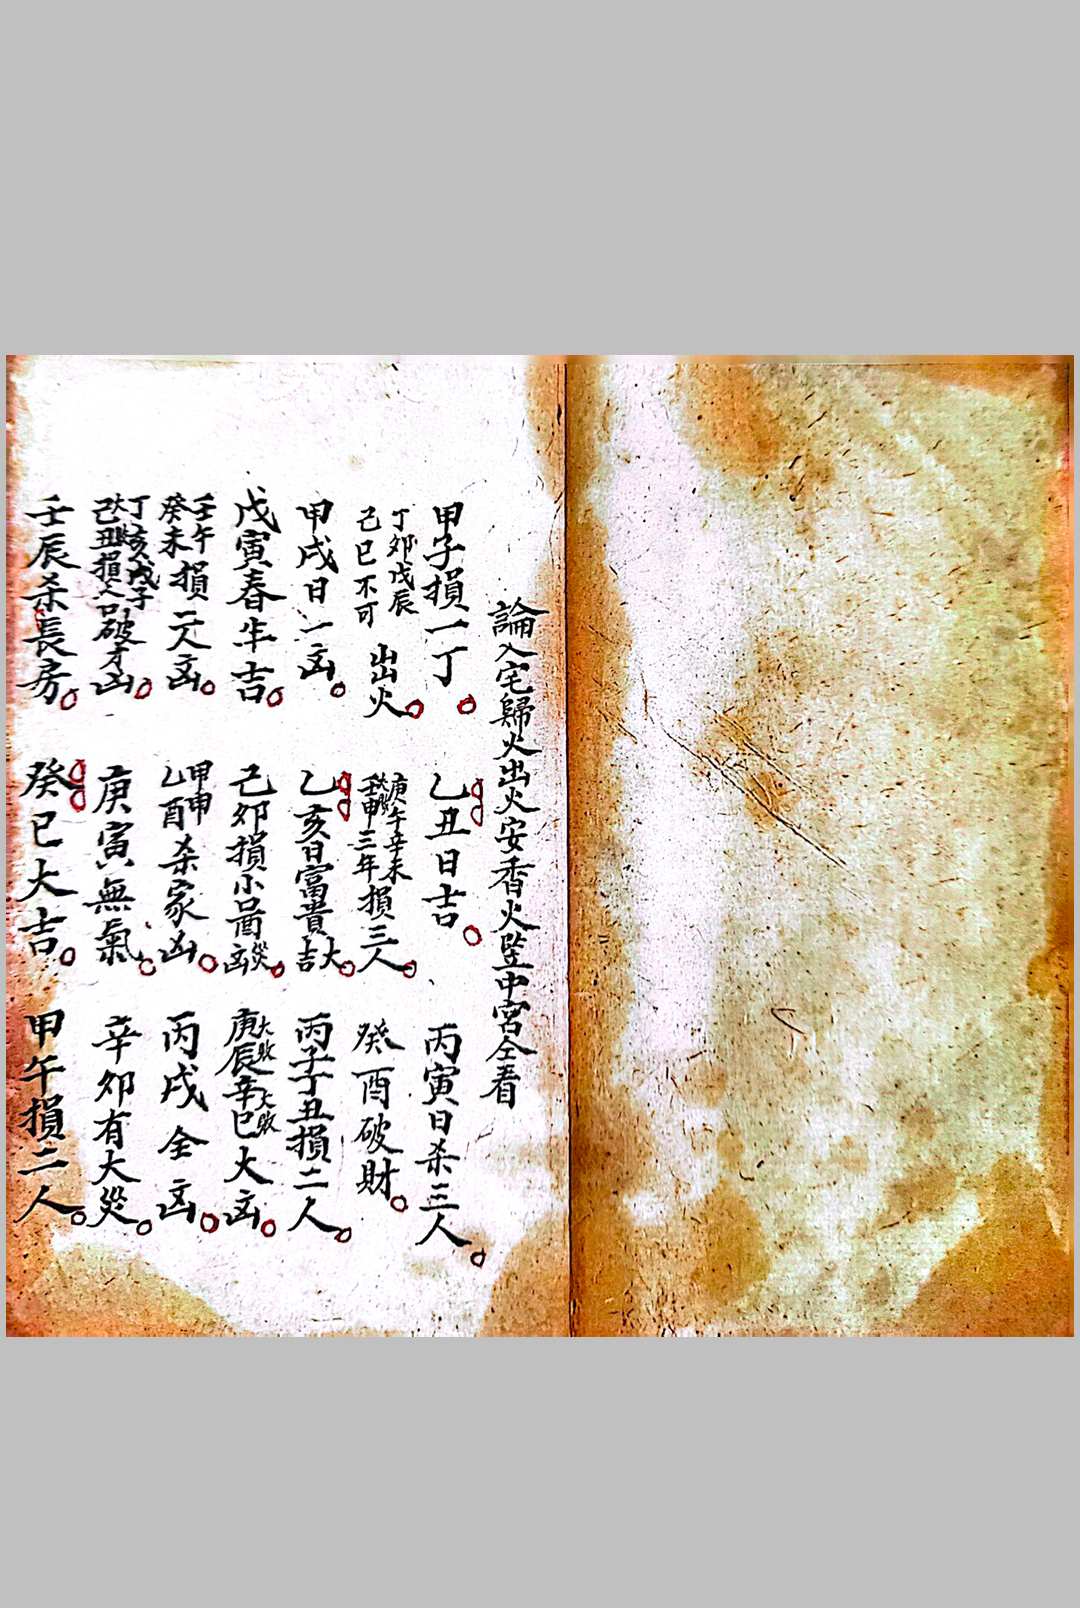 論入宅歸火出火安香火監中宮仝看
甲子損一丁 乙丑日吉 丙寅日杀三人
丁卯戊辰己巳不可出火 庚午辛未壬申三年損三人 癸酉破財
甲戌日一凶 乙亥日富貴大吉 丙子丁丑損二人
戊寅春牛吉 己卯損小口凶 庚辰大敗辛巳大敗大凶
壬午癸未損二人凶 甲申乙酉杀家凶 丙戌仝凶
丁亥戊子己丑損人口破才凶 庚寅無氣 辛卯有大災
壬辰杀長房 癸巳大吉 甲午損二人